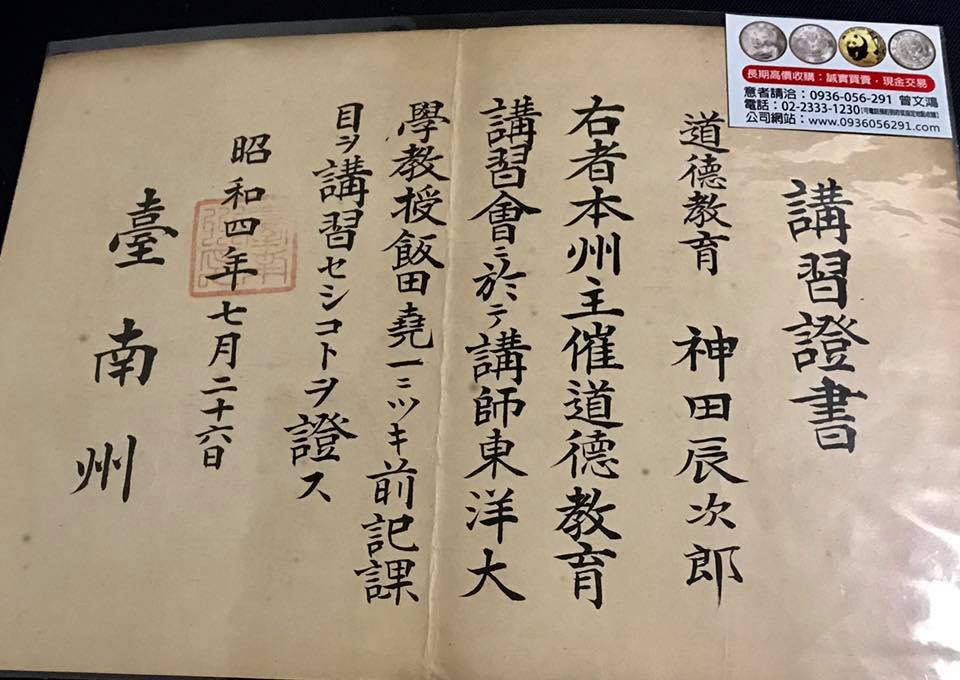 講習證書
道德教育　神田辰次郎
右者本州主催道德教育
講習會ニ於テ講師東洋大
學教授飯田堯一ニツキ前記課
目ヲ講習セシコトヲ證ス
昭和四年七月二十六日
臺南州
長期高價收購：誠實買賣・現金交易
意者請洽：0936-056-291 曾文鴻
電話：02-2333-1230
公司網站：www.0936056291.com